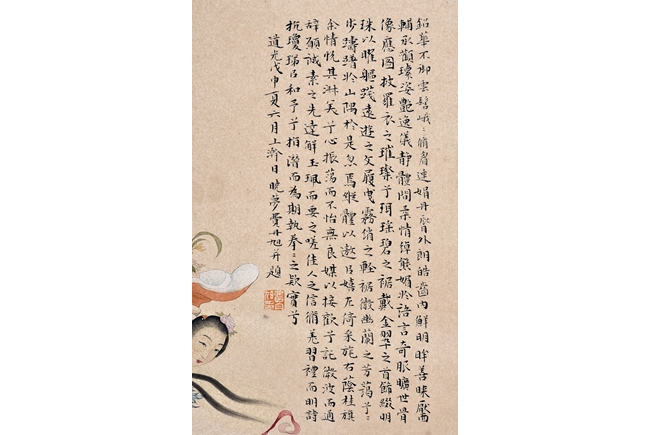 鉛華不御雲髻峨〻脩眉連娟丹脣外朗皓齒內鮮明眸善睞靨
輔承顴瓌姿艷逸儀靜體閒柔情綽態媚於語言奇服曠世骨
像應圖披羅衣之璀璨兮珥瑤碧之裾戴金翠之首飾綴明
珠以曜軀踐遠遊之文履曳霧綃之輕裾微幽蘭之芳藹兮〻
步躊躇於山隅於是忽焉縱體以遨以嬉左倚采旄右蔭桂旗
余情悅其淑美兮心振蕩而不怡無良媒以接歡兮託微波而通
辭願誠素之先達解玉珮而要之嗟佳人之信脩羌習禮而明詩
抗瓊珶以和予兮指潛而為期執拳〻之欵實兮
道光戊申夏六月上澣日曉夢費丹旭并題